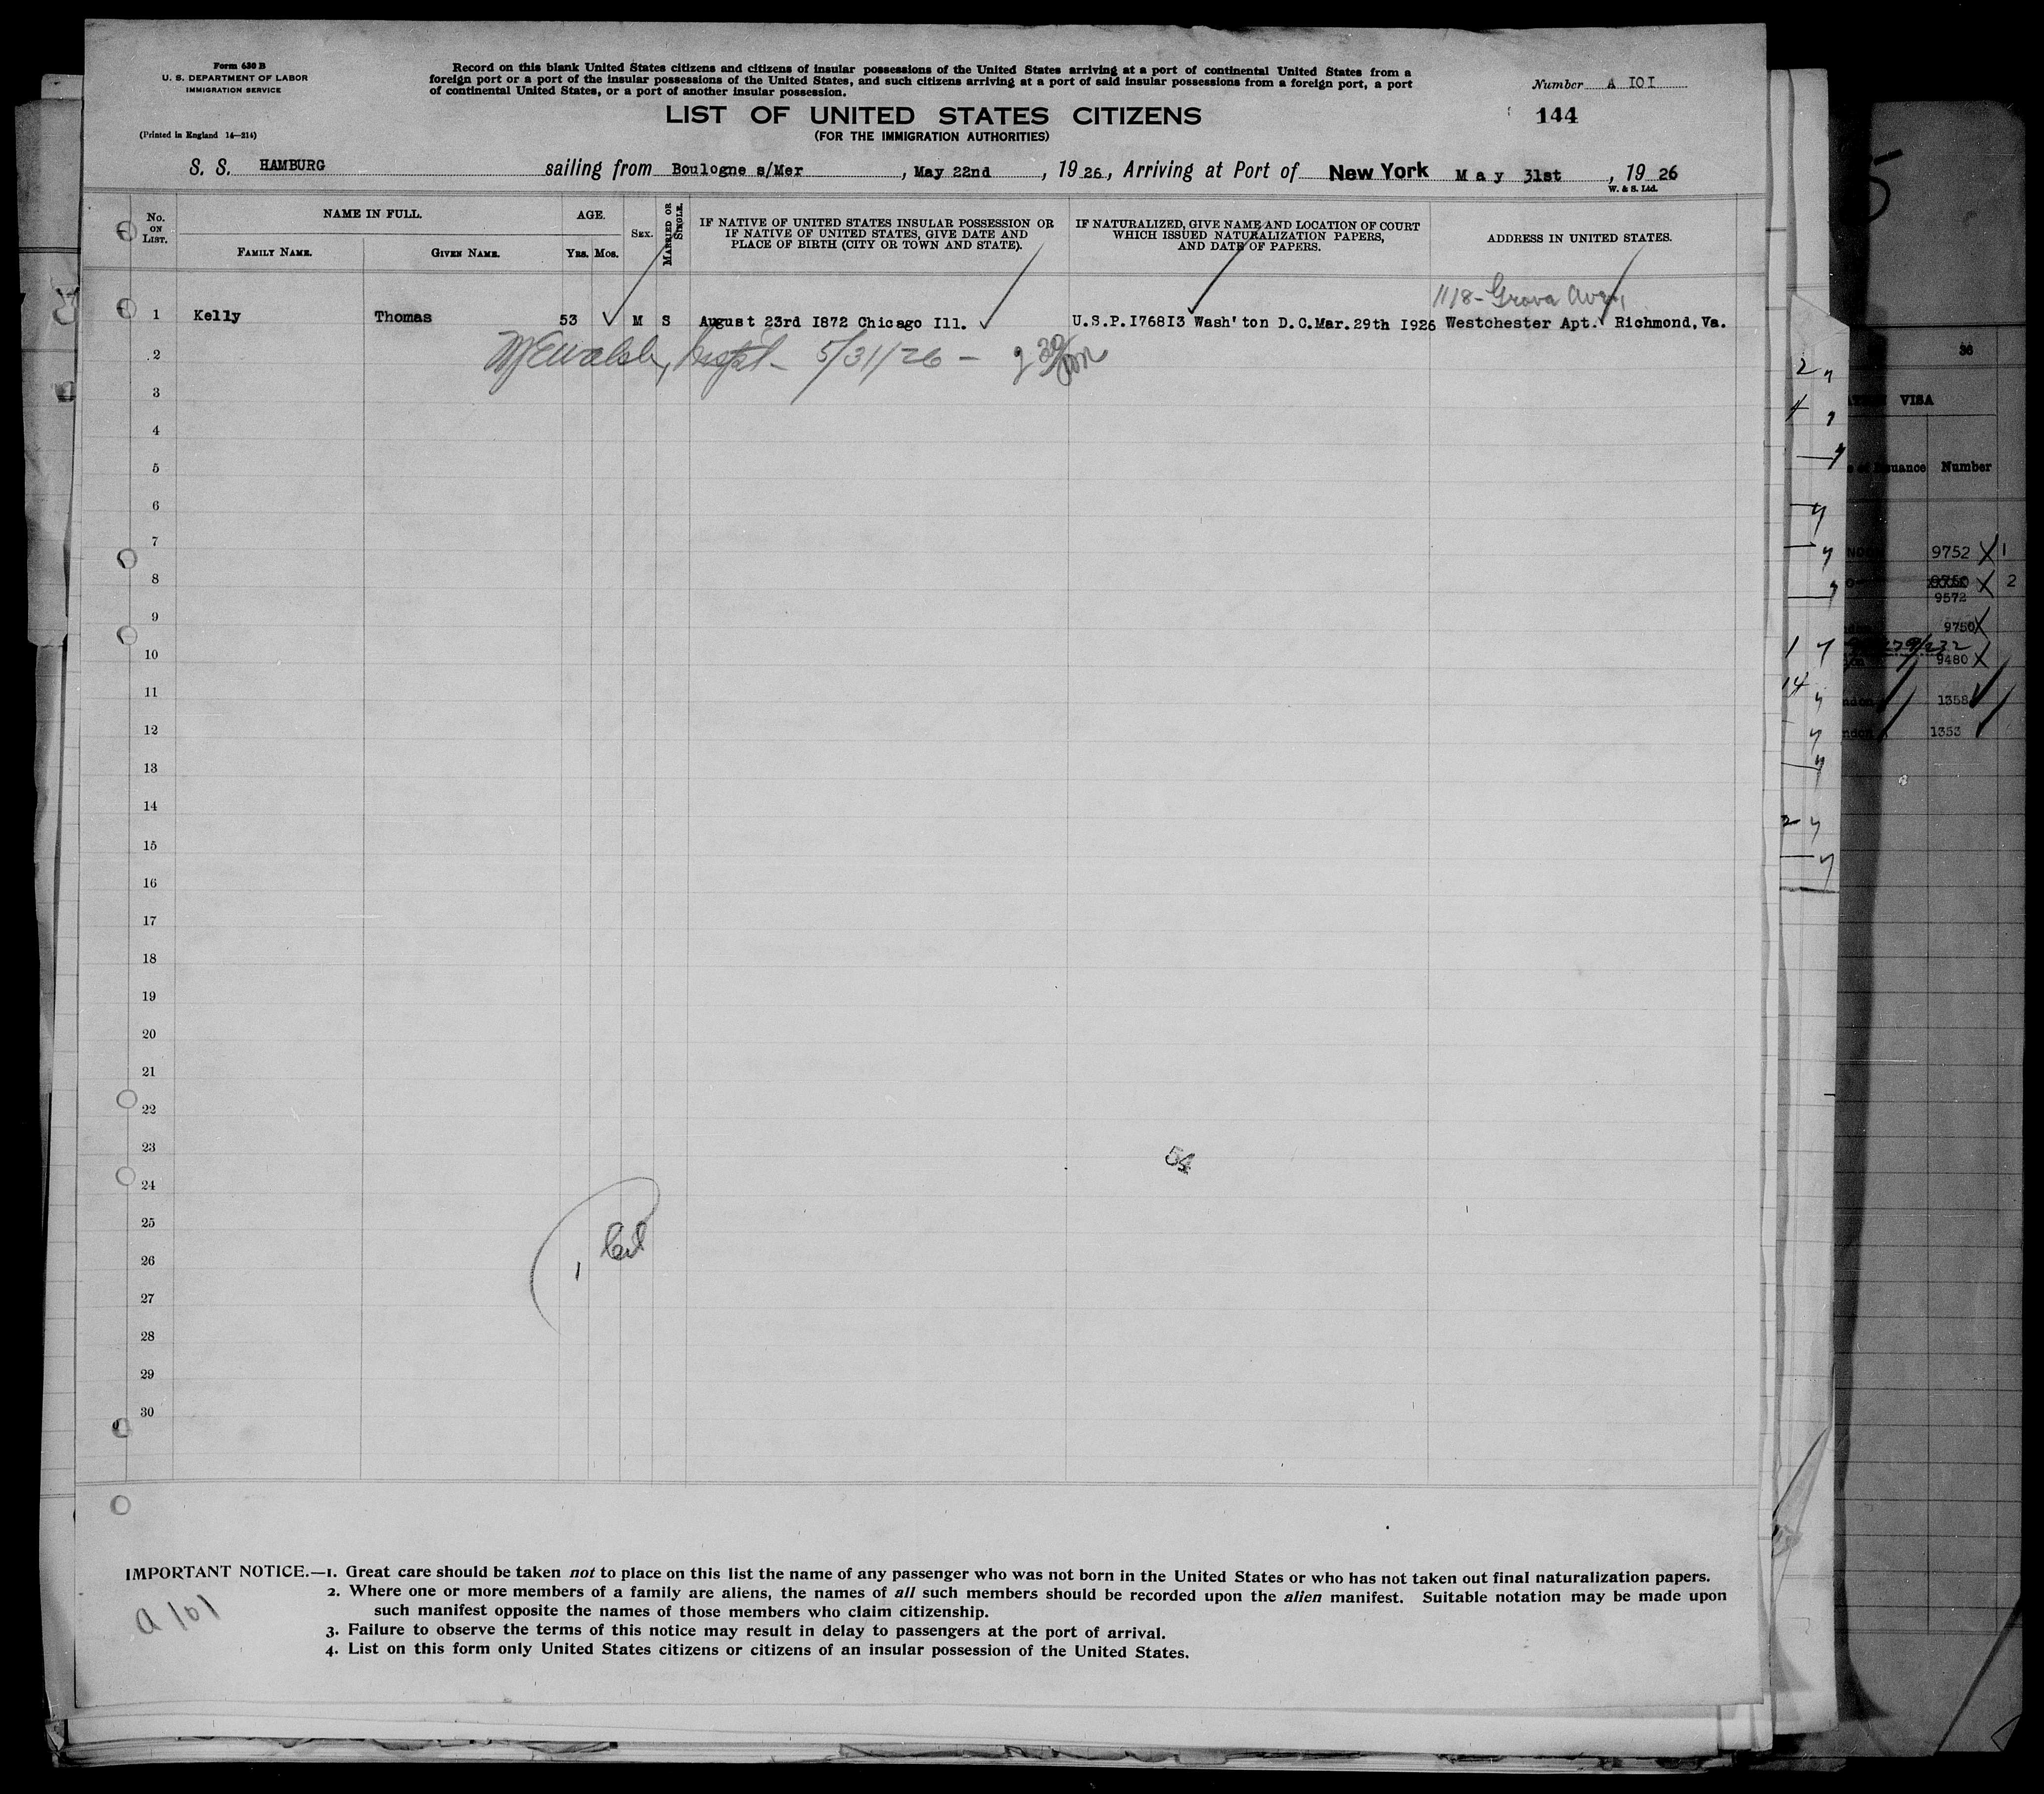 Form 630 B
U. S. DEPARTMENT OF LABOR
IMMIGRATION SERVICE
(Printed in England 14—214)
Record on this blank United States citizens and citizens of insular possessions of the United States arriving at a port of continental United States from a
foreign port or a port of the insular possessions of the United States, and such citizens arriving at a port of said insular possessions from a foreign port, a port
of continental United States, or a port of another insular possession.
Number A IOI
LIST OF UNITED STATES CITIZENS
144
(FOR THE IMMIGRATION AUTHORITIES)
S. S. HAMBURG sailing from Boulogne s/Mer, May 22nd, 1926, Arriving at Port of New York May 31st, 1926
W. & S. Ltd.
No. ON LIST.
NAME IN FULL.
FAMILY NAME.
GIVEN NAME.
AGE.
YRS. MOS.
SEX.
MARRIED OR SINGLE.
IF NATIVE OF UNITED STATES INSULAR POSSESSION OR
IF NATIVE OF UNITED STATES, GIVE DATE AND
PLACE OF BIRTH (CITY OR TOWN AND STATE).
IF NATURALIZED, GIVE NAME AND LOCATION OF COURT
WHICH ISSUED NATURALIZATION PAPERS,
AND DATE OF PAPERS.
ADDRESS IN UNITED STATES.
1118 - Grova Ave,
1 Kelly Thomas 53 M S August 23rd I872 Chicago Ill. U.S.P.I768I3 Wash'ton D.C.Mar.29th I926 Westchester Apt. Richmond,Va.
2 5/31/26 -
3
4
5
6
7
8
9
10
11
12
13
14
15
16
17
18
19
20
21
22
23
54
24
25
1 Cit
26
27
28
29
30
IMPORTANT NOTICE.—1. Great care should be taken not to place on this list the name of any passenger who was not born in the United States or who has not taken out final naturalization papers.
2. Where one or more members of a family are aliens, the names of all such members should be recorded upon the alien manifest. Suitable notation may be made upon
such manifest opposite the names of those members who claim citizenship.
3. Failure to observe the terms of this notice may result in delay to passengers at the port of arrival.
4. List on this form only United States citizens or citizens of an insular possession of the United States.
A 101
5
36
VISA
Issuance Number
9752 X 1
9750 X 2
9572
9750 X
9480 X
1358
1353